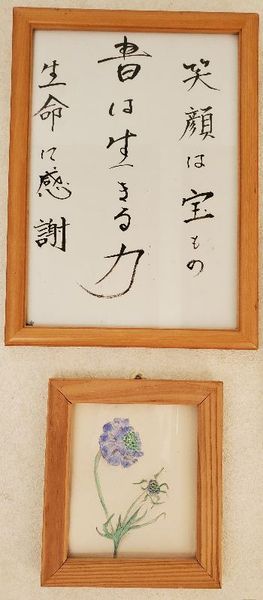 笑顔は宝もの
書は生きる力
生命に感謝